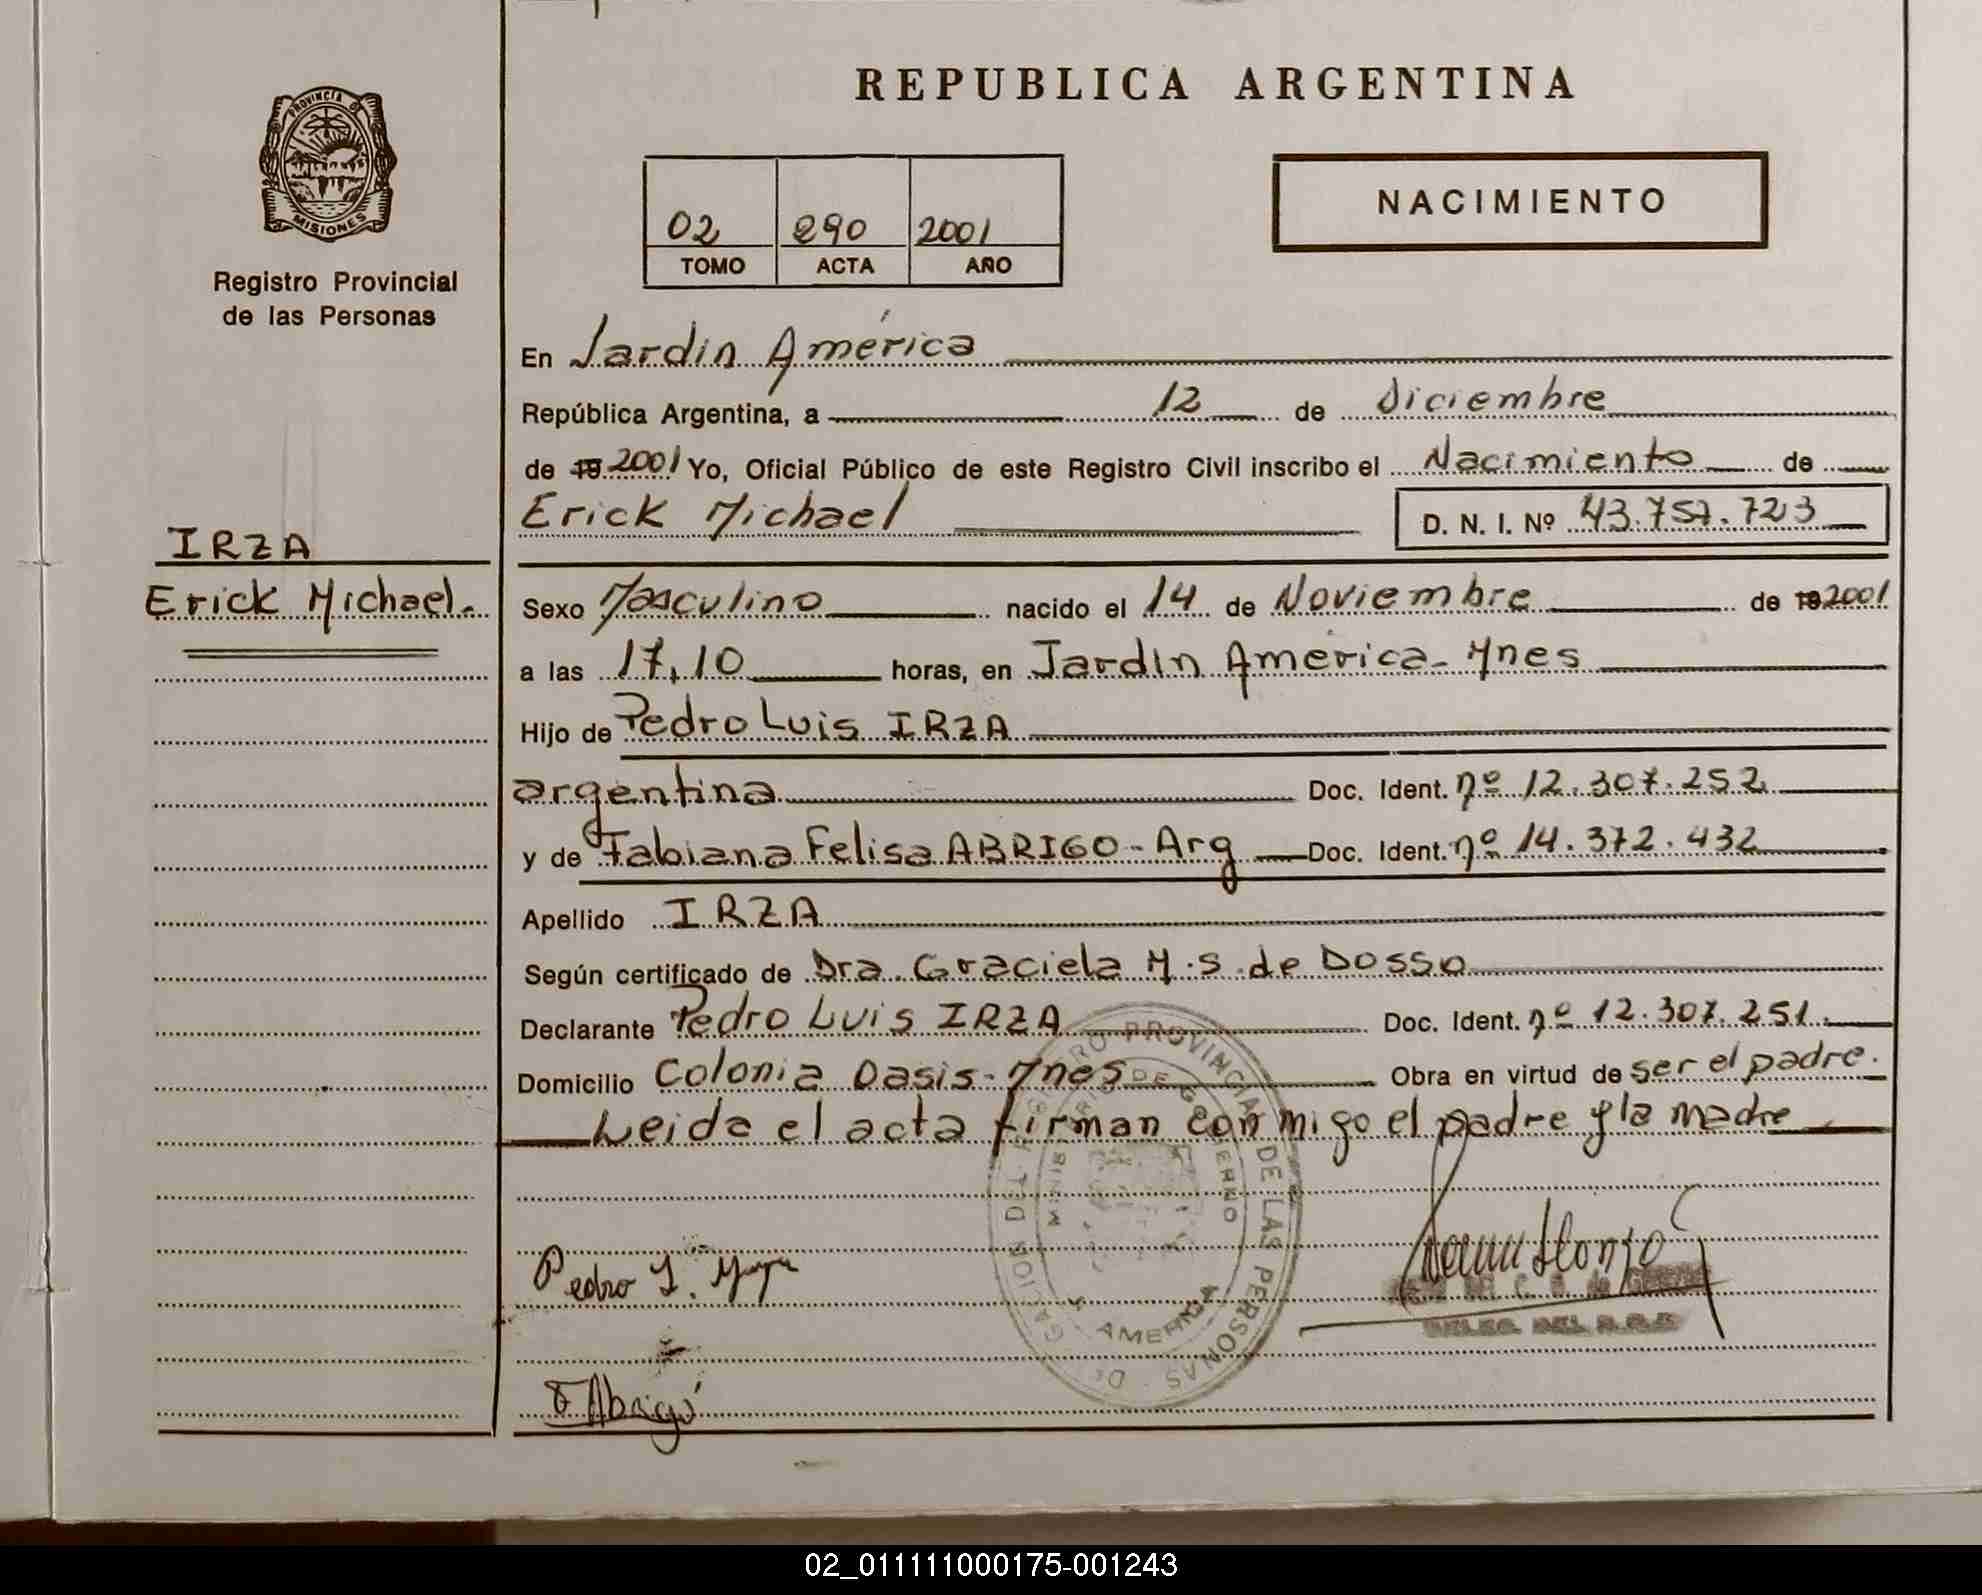 REPUBLICA ARGENTINA
PROVINCIA DE
MISIONES
Registro Provincial
de las Personas
02 290 2001
TOMO ACTA AÑO
NACIMIENTO
En Jardin América
República Argentina, a 12 de Diciembre
de 19 2001 Yo, Oficial Público de este Registro Civil inscribo el Nacimiento de
Erick Michael
D. N. I. Nº 43.757.723
IRZA
Erick Michael.
Sexo Masculino nacido el 14 de Noviembre de 19 2001
a las 17,10 horas, en Jardin América - Mnes
Hijo de Pedro Luis IRZA
argentina Doc. Ident. nº 12.307.252
y de Fabiana Felisa ABRIGO - Arg Doc. Ident. nº 14.372.432
Apellido IRZA
Según certificado de Dra. Graciela M.S. de Dosso
Declarante Pedro Luis IRZA Doc. Ident. nº 12.307.251.
Domicilio Colonia Oasis - Mnes Obra en virtud de ser el padre.
Leida el acta firman conmigo el padre y la madre
REGISTRO PROVINCIAL DE LAS PERSONAS
MINISTERIO DE GOBIERNO
AMERICA
Pedro L.
F Abrigó
02_011111000175-001243